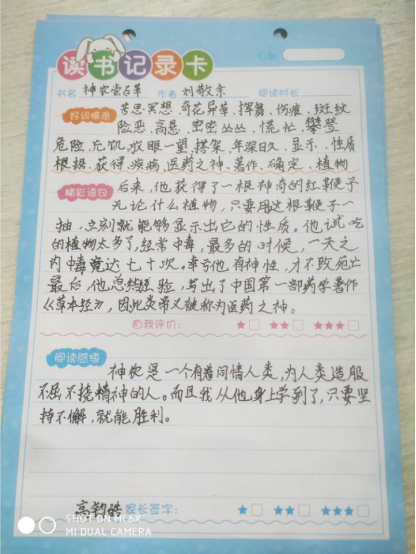 读书记录卡
日期:
书名 神农尝百草 作者 刘敬余 阅读时长
好词精选 苦思冥想、奇花异草、挥舞、伤疤、斑蚊
险恶、高悬、密密丛丛、慌忙、攀登
危险、充饥、放眼一望、搭架、年深日久、显示、性质
根据、获得、疾病、医药之神、著作、确定、植物
精彩语句 后来,他获得了一根神奇的红鞭子
无论什么植物,只要用这根鞭子一
抽,立刻就能够显示出它的性质。他试吃
的植物太多了,经常中毒,最多的时候,一天之
内中毒竟达七十次。幸亏他有神性,才不致死亡
最后他总结经验,写出了中国第一部药学著作
《草本经》,因此炎帝又被称为医药之神。
自我评价: ★ ★★ ★★★
阅读感悟
神农是一个有着同情人类,为人类造服
不屈不挠精神的人。而且我从他身上学到了,只要坚
持不懈,就能胜利。
家长签字: ★ ★★ ★★★
SHOT ON MI 6X
MI DUAL CAMERA